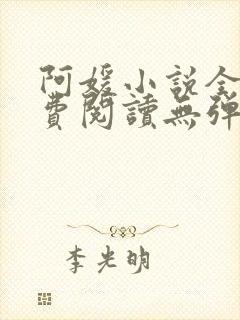 阿媛小說全
費閱讀無彈
李光明